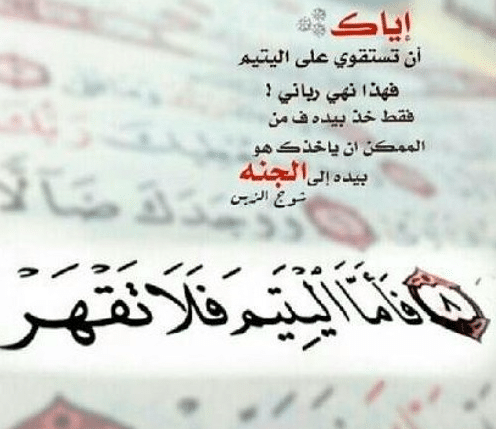 إياك
أن تستقوي على اليتيم
فهذا نهي رباني !
فقط خذ بيده ف من
الممكن ان ياخذك هو
بيده إلى الجنه
ووجدك ضالا
۝٨ فَأَمَّا الْيَتِيمَ فَلَا تَقْهَرْ